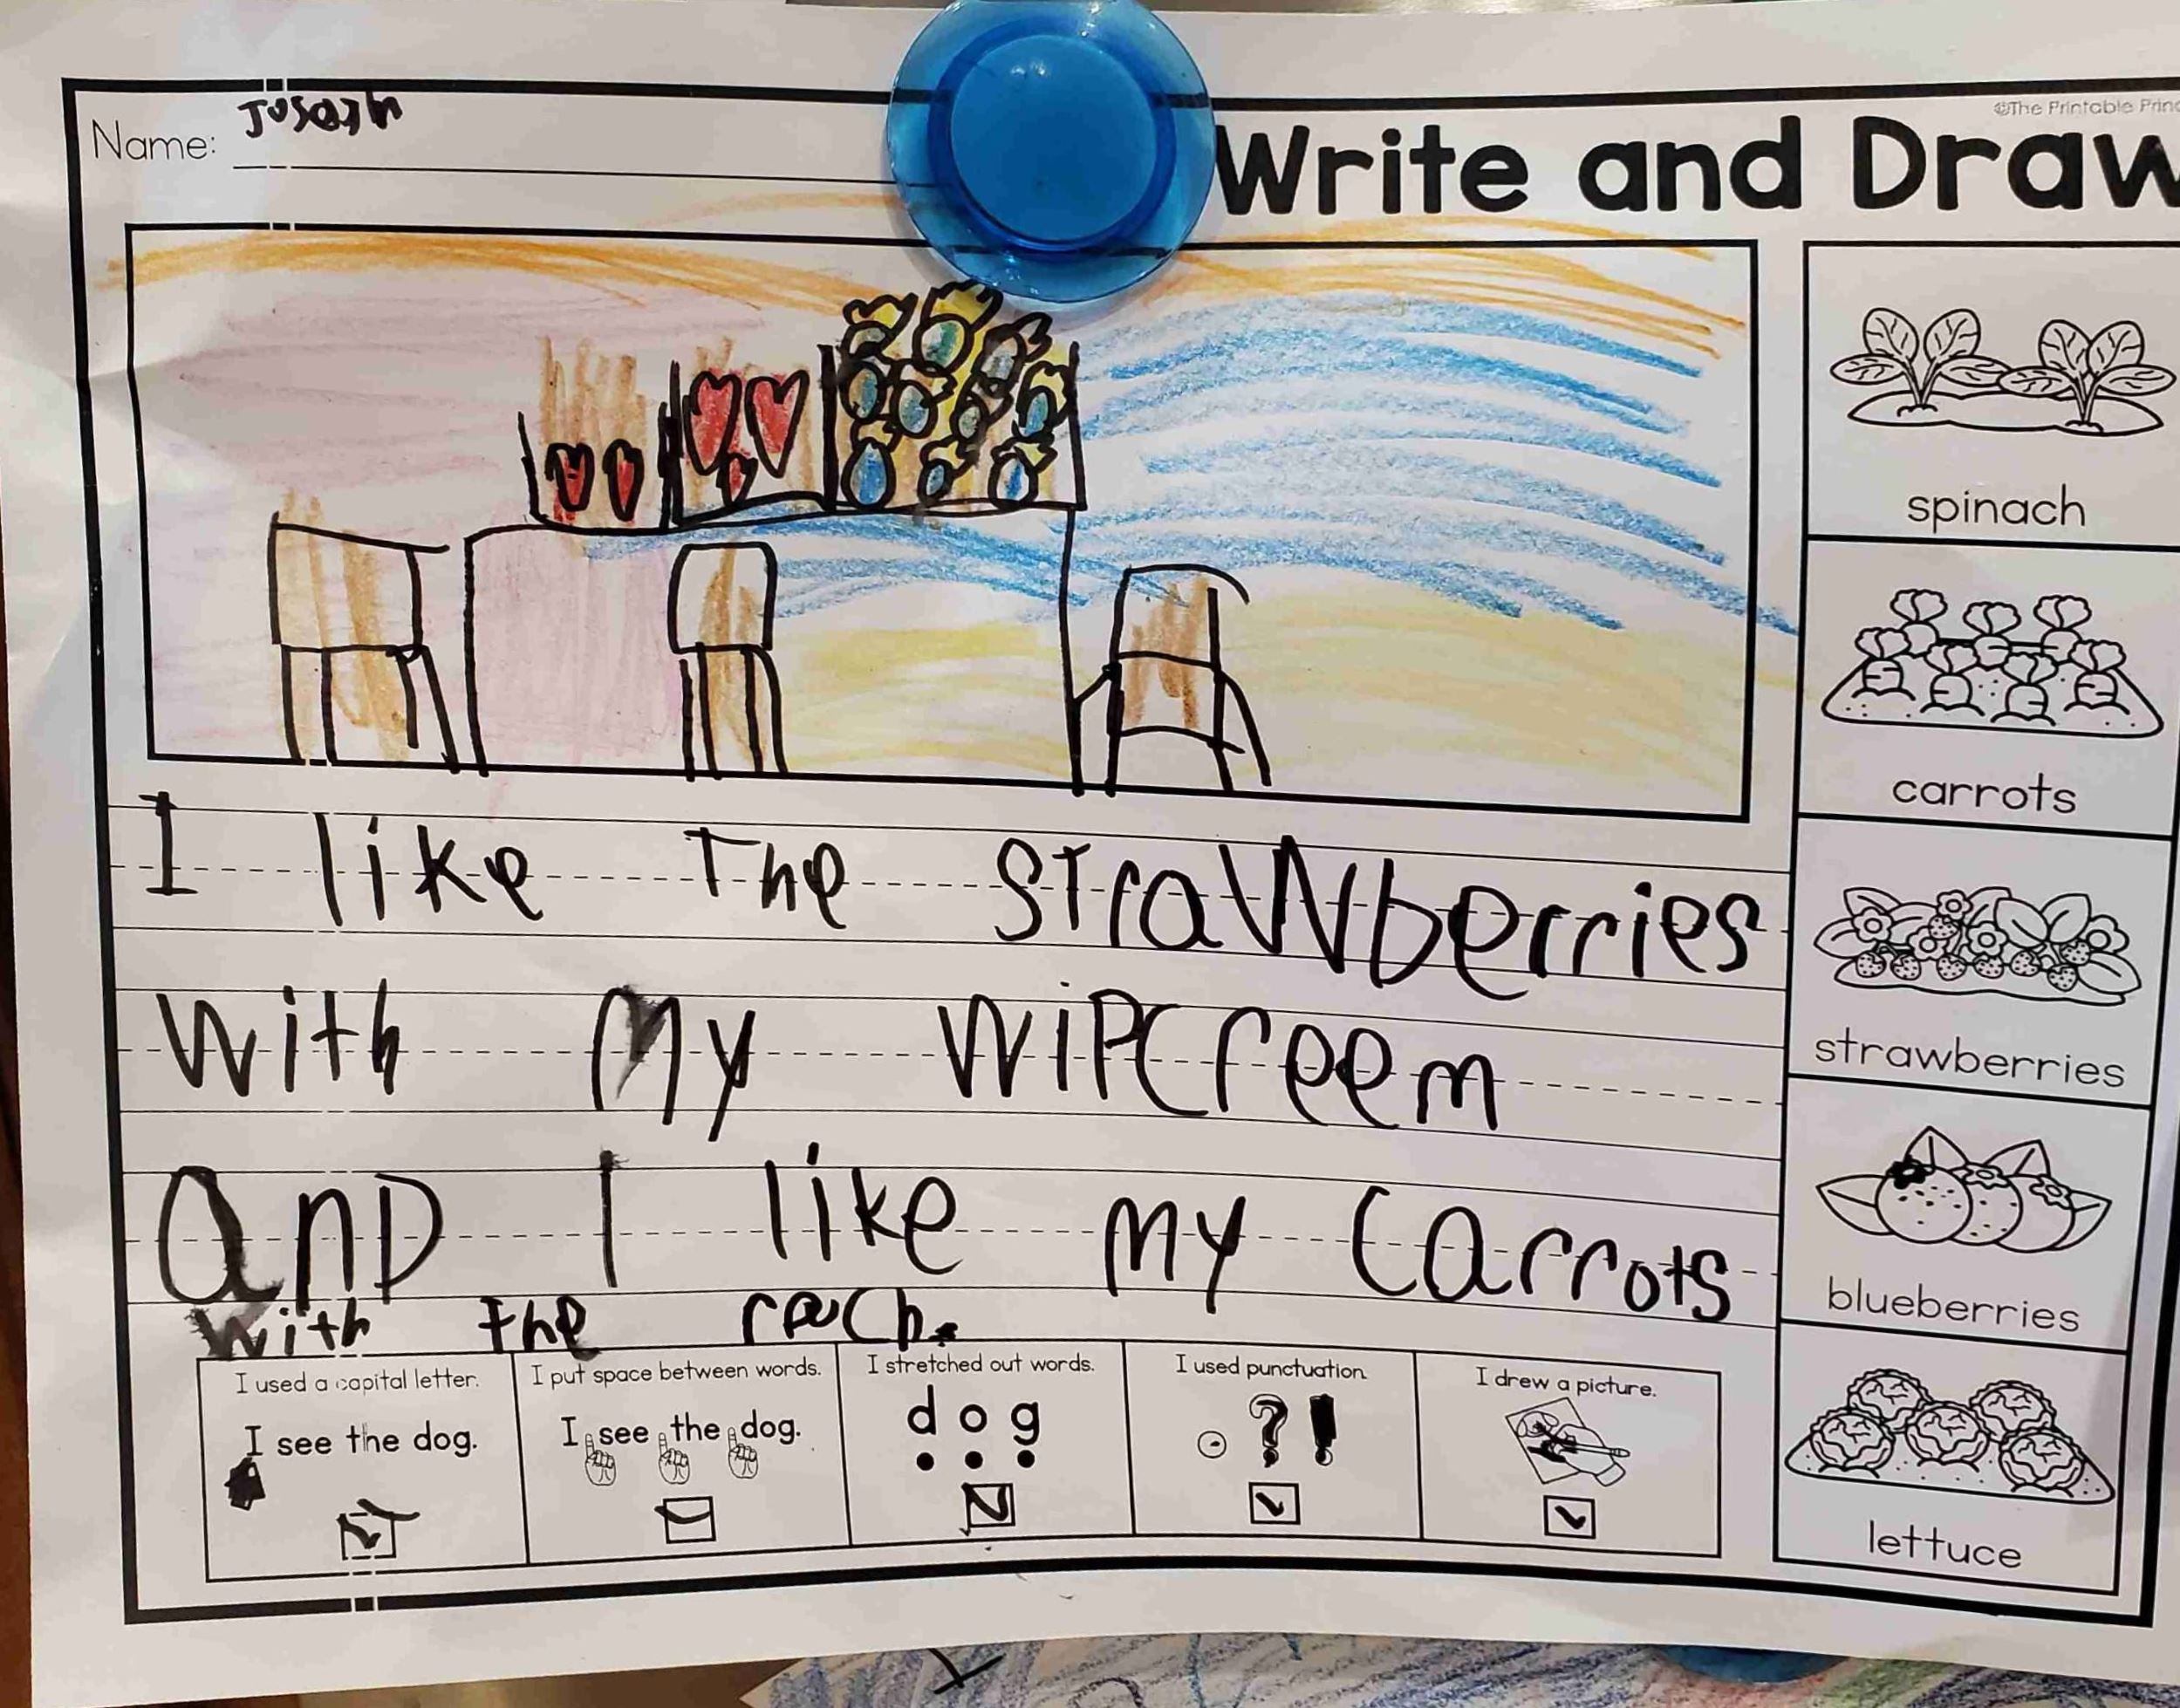 ©The Printable Prin
Name: Joseph
Write and Draw
spinach
carrots
strawberries
blueberries
lettuce
I like The strawberries
with My wipcreem
anD I like my carrots
with the rauch.
I used a capital letter.
I see the dog.
I put space between words.
I see the dog.
I stretched out words.
d o g
I used punctuation.
. ? !
I drew a picture.